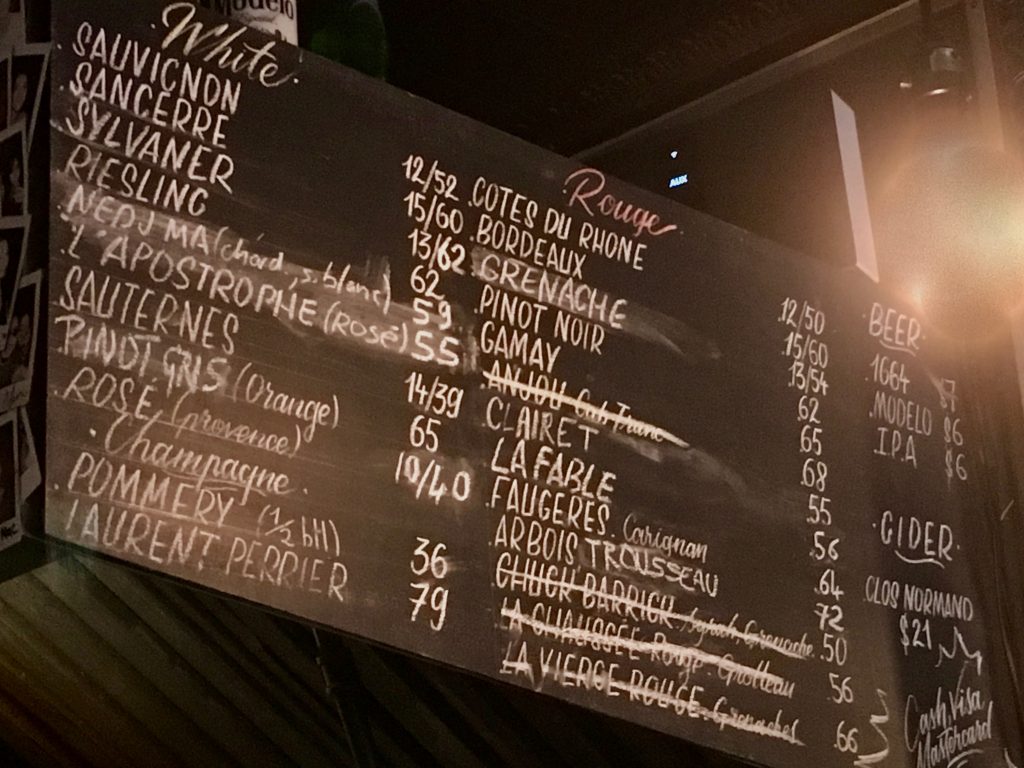 Modelo
White
SAUVIGNON 12/52
SANCERRE 15/60
SYLVANER 13/62
RIESLING 62
NEDJMA (chard, s. blanc) 59
L'APOSTROPHE (Rosé) 55
SAUTERNES 14/39
PINOT GRIS (Orange) 65
ROSÉ (Provence) 10/40
Champagne
POMMERY (1/2 btl) 36
LAURENT PERRIER 79
Rouge
COTES DU RHONE 12/50
BORDEAUX 15/60
GRENACHE 13/54
PINOT NOIR 62
GAMAY 65
ANJOU Cab Franc 68
CLAIRET 55
LA FABLE 56
FAUGERES Carignan 64
ARBOIS TROUSSEAU 72
CHUCK BARRICK Grenache 50
LA CHAUSSÉE Rouge Grolleau 56
LA VIERGE ROUGE 66
AUX
BEER
1664 $7
MODELO $6
I.P.A $6
CIDER
CLOS NORMAND
$21
Cash, Visa
Mastercard